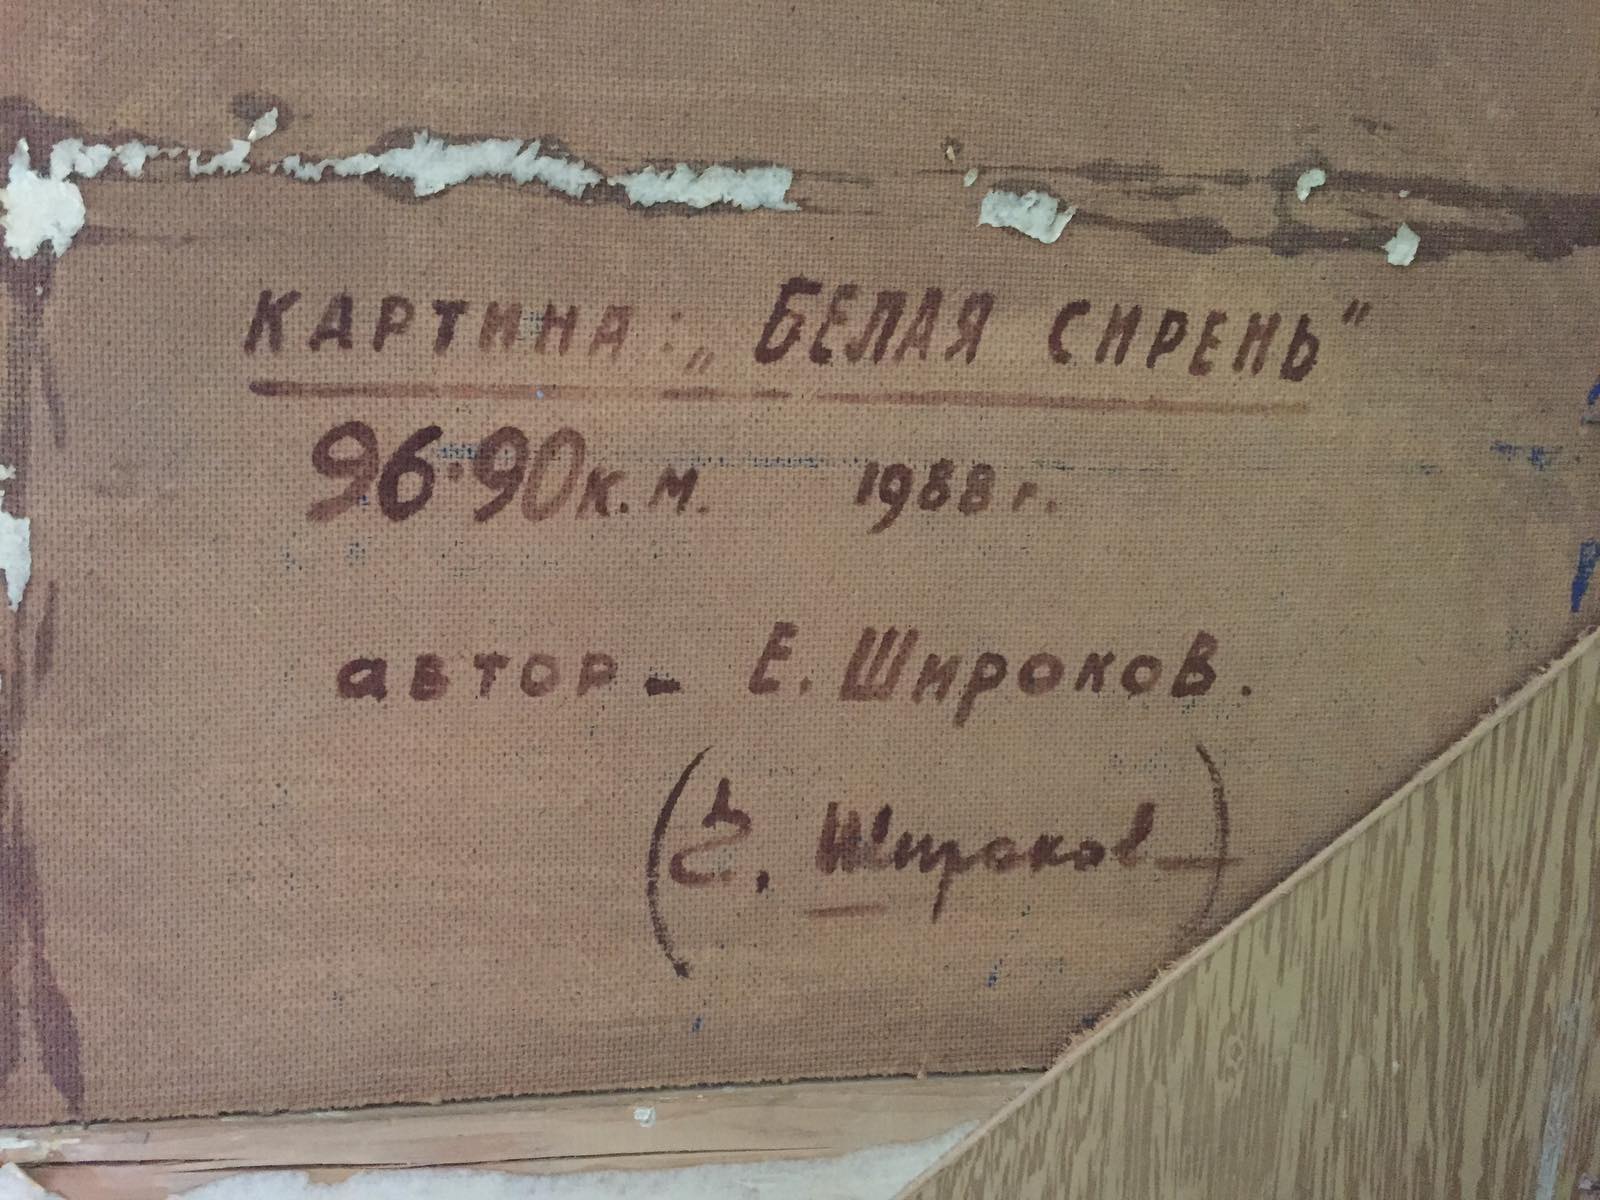 КАРТИНА: „БЕЛАЯ СИРЕНЬ"
96·90 к.м. 1988 г.
автор - Е. Широков.
(Е. Широков)